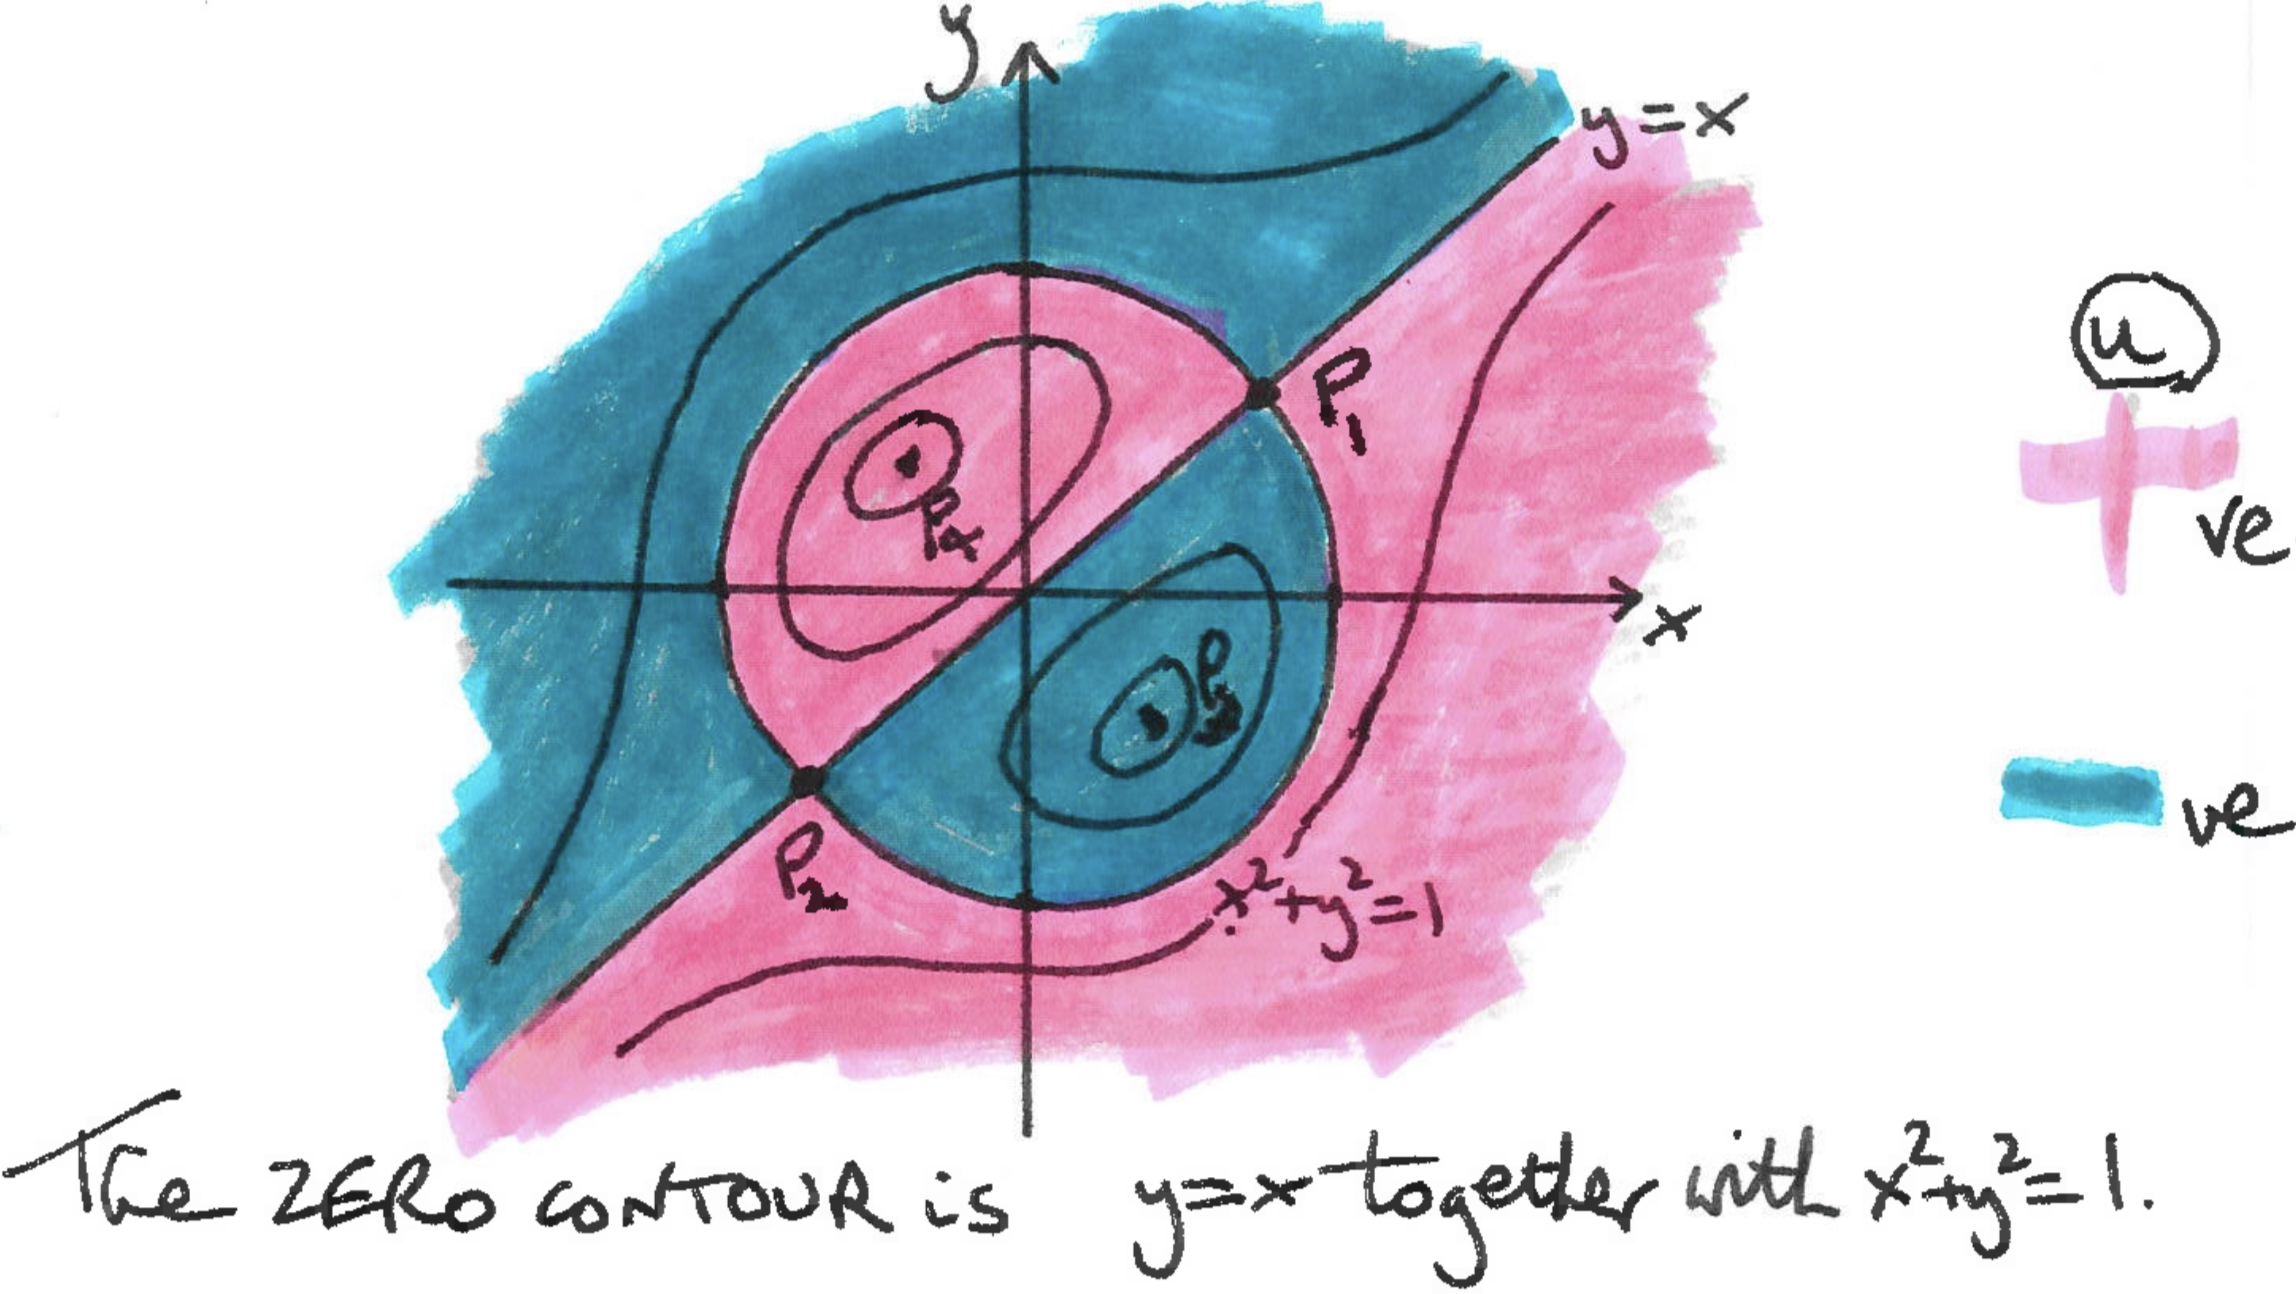 y
y=x
P₁
u
+ve
P₄
x
P₃
-ve
P₂
x²+y²=1
The ZERO CONTOUR is y=x together with x²+y²=1.